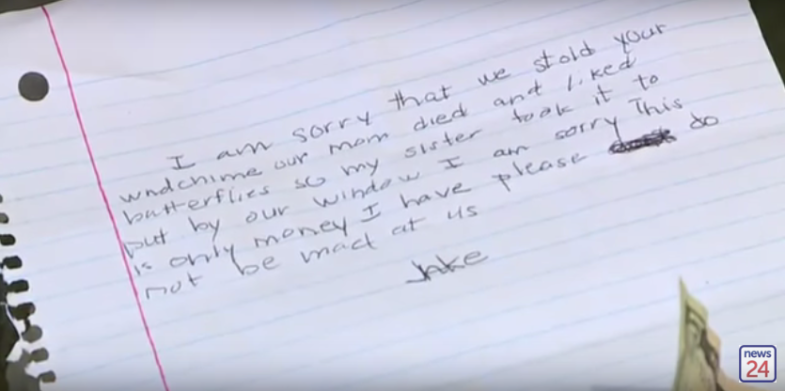 I am sorry that we stold your
wndchime our mom died and liked
butterflies so my sister took it to
put by our window I am sorry This
is only money I have please do
not be mad at us
Jake
news
24